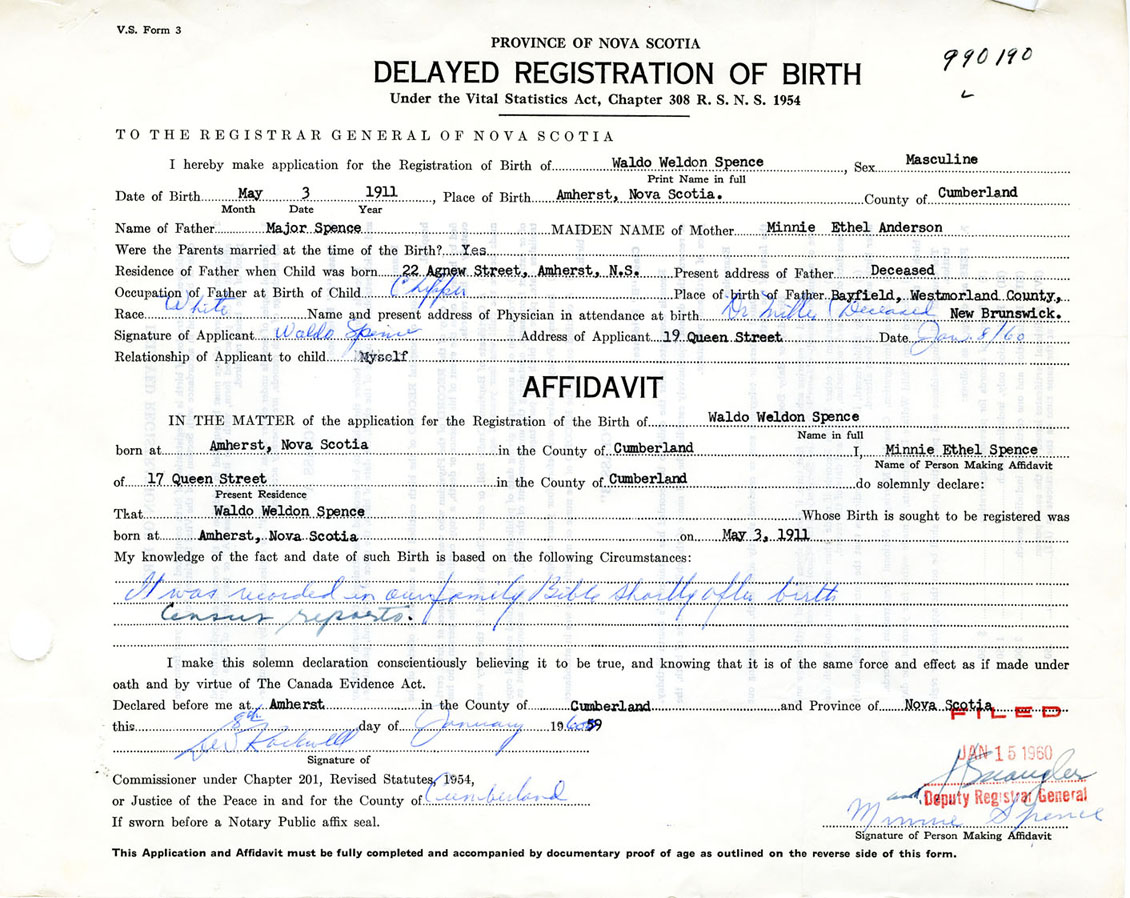 V.S. Form 3
PROVINCE OF NOVA SCOTIA
990190
DELAYED REGISTRATION OF BIRTH
Under the Vital Statistics Act, Chapter 308 R. S. N. S. 1954
TO THE REGISTRAR GENERAL OF NOVA SCOTIA
I hereby make application for the Registration of Birth of Waldo Weldon Spence, Sex Masculine
Print Name in full
Date of Birth May 3 1911, Place of Birth Amherst, Nova Scotia. County of Cumberland
Month Date Year
Name of Father Major Spence MAIDEN NAME of Mother Minnie Ethel Anderson
Were the Parents married at the time of the Birth? Yes
Residence of Father when Child was born 22 Agnew Street, Amherst, N.S. Present address of Father Deceased
Occupation of Father at Birth of Child Chipper Place of birth of Father Bayfield, Westmorland County,
Race White Name and present address of Physician in attendance at birth Dr Miller Deceased New Brunswick.
Signature of Applicant Waldo Spence Address of Applicant 19 Queen Street Date Jan. 8/60
Relationship of Applicant to child Myself
AFFIDAVIT
IN THE MATTER of the application for the Registration of the Birth of Waldo Weldon Spence
Name in full
born at Amherst, Nova Scotia in the County of Cumberland I, Minnie Ethel Spence
Name of Person Making Affidavit
of 17 Queen Street in the County of Cumberland do solemnly declare:
Present Residence
That Waldo Weldon Spence Whose Birth is sought to be registered was
born at Amherst, Nova Scotia on May 3, 1911
My knowledge of the fact and date of such Birth is based on the following Circumstances:
It was recorded in our family Bible shortly after birth
Census reports.
I make this solemn declaration conscientiously believing it to be true, and knowing that it is of the same force and effect as if made under
oath and by virtue of The Canada Evidence Act.
Declared before me at Amherst in the County of Cumberland and Province of Nova Scotia
FILED
this 8th day of January 1960
JAN 15 1960
Signature of
Commissioner under Chapter 201, Revised Statutes, 1954,
or Justice of the Peace in and for the County of Cumberland
Deputy Registrar General
Minnie Spence
If sworn before a Notary Public affix seal.
Signature of Person Making Affidavit
This Application and Affidavit must be fully completed and accompanied by documentary proof of age as outlined on the reverse side of this form.